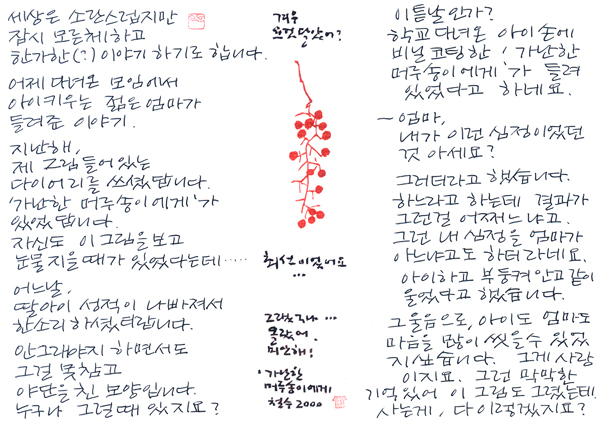 세상은 소란스럽지만
잠시 모른체하고
한가한(?) 이야기 하기로 합니다.
어제 다녀온 모임에서
아이키우는 젊은 엄마가
들려준 이야기.
지난해,
제 그림 들어있는
다이어리를 쓰셨답니다.
'가난한 머루송이에게'가
있었답니다.
자신도 이 그림을 보고
눈물지을때가 있었다는데……
어느날,
딸아이 성적이 나빠져서
한소리 하셨더랍니다.
안그래야지 하면서도
그걸 못참고
야단을 친 모양입니다.
누구나 그럴때 있지요?
겨우
요것 달았어?
최선이었어요
…
그랬구나…
몰랐어.
미안해!
'가난한
머루송이에게
철수 2000
이튿날인가?
학교 다녀온 아이손에
비닐 코팅한 '가난한
머루송이에게'가 들려
있었다고 하네요.
~엄마,
내가 이런 심정이었던
것 아세요?
그러더라고 했습니다.
하느라고 하는데 결과가
그런걸 어쩌느냐고.
그런 내 심정을 엄마가
아느냐고도 하더라네요.
아이하고 부둥켜안고 같이
울었다고 했습니다.
그 울음으로, 아이도 엄마도
마음을 많이 씻을수 있었
지 싶습니다. 그게 사랑
이지요. 그런 막막한
기억있어 이 그림도 그렸는데.
사는게, 다 이렇겠지요?